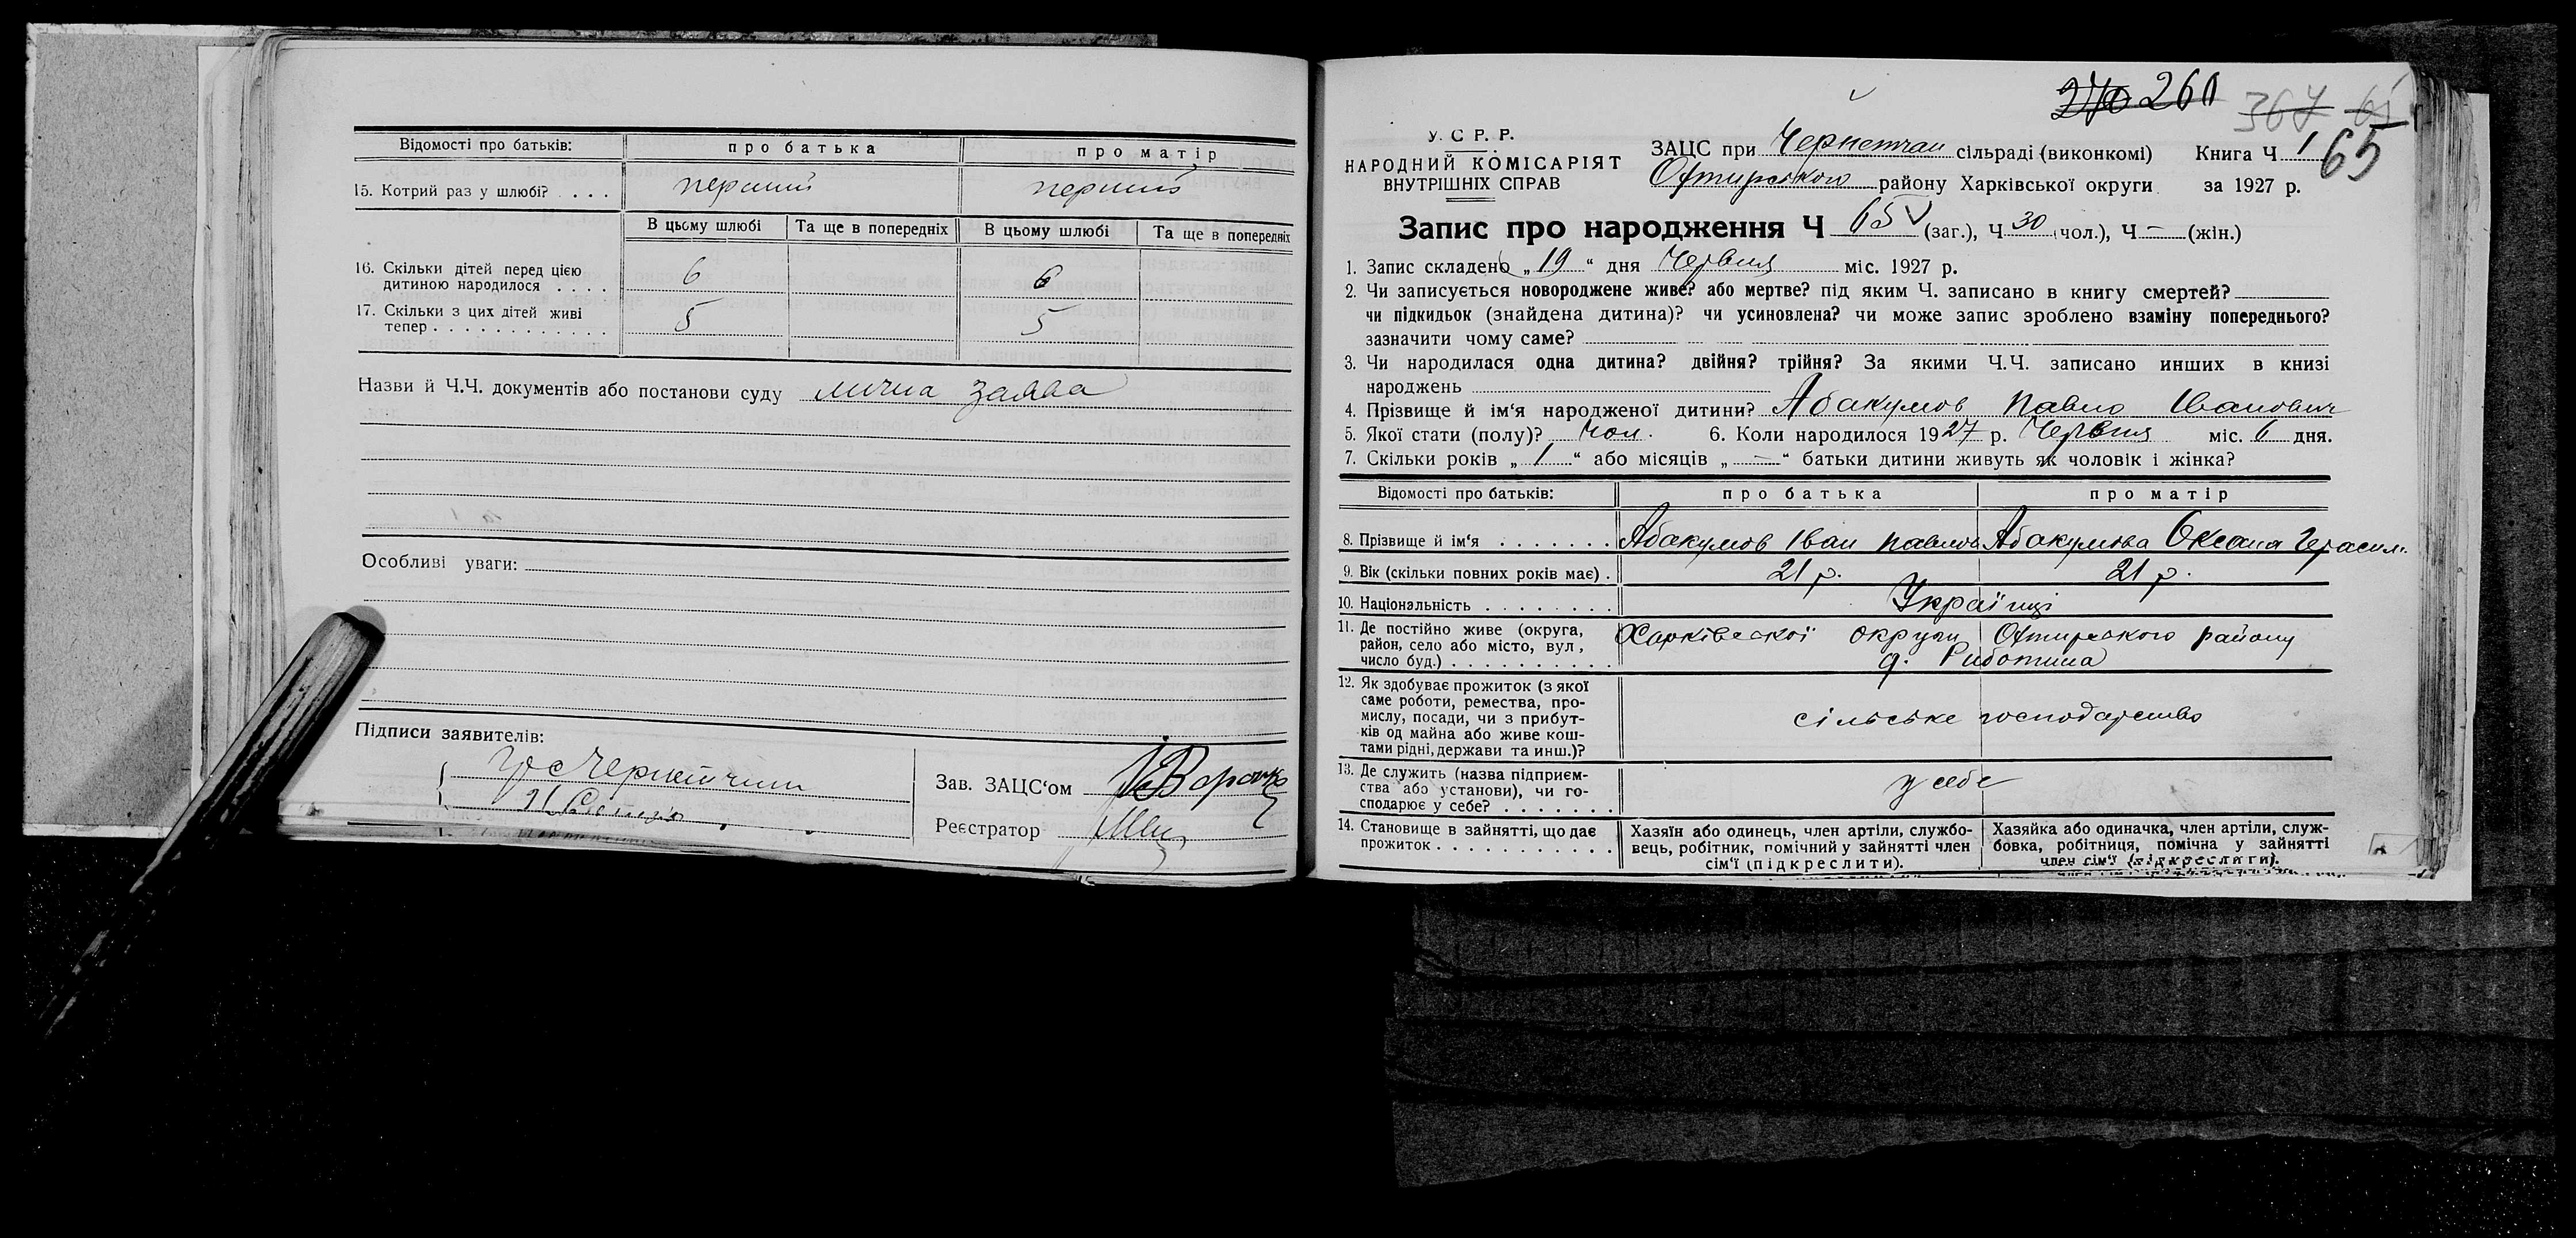 Відомості про батьків: про батька про матір
15. Котрий раз у шлюбі? . . . . перший перший
В цьому шлюбі Та ще в попередніх В цьому шлюбі Та ще в попередніх
16. Скільки дітей перед цією
дитиною народилося . . . . 6 6
17. Скільки з цих дітей живі
тепер . . . . . . . . . . . . 5 5
Назви й Ч.Ч. документів або постанови суду лична заява
Особливі уваги:
Підписи заявителів:
Зав. ЗАЦС‘ом
Реєстратор
270 260 307 65
65
У. С Р. Р.
НАРОДНИЙ КОМІСАРІЯТ
ВНУТРІШНІХ СПРАВ
ЗАЦС при Чернетчан сільраді (виконкомі) Книга Ч 1
Охтирського району Харківської округи за 1927 р.
Запис про народження Ч 65 (заг.), Ч 30 (чол.), Ч - (жін.)
1. Запис складено „19“ дня Червня міс. 1927 р.
2. Чи записується новороджене живе? або мертве? під яким Ч. записано в книгу смертей?
чи підкидьок (знайдена дитина)? чи усиновлена? чи може запис зроблено взаміну попереднього?
зазначити чому саме?
3. Чи народилася одна дитина? двійня? трійня? За якими Ч.Ч. записано инших в книзі
народжень
4. Прізвище й ім‘я народженої дитини? Абакумов Павло Іванович
5. Якої стати (полу)? чол. 6. Коли народилось 1927 р. Червня міс. 6 дня.
7. Скільки років „1“ або місяців „—“ батьки дитини живуть як чоловік і жінка?
Відомості про батьків: про батька про матір
8. Прізвище й ім‘я . . . . . . . Абакумов Іван Павлов Абакумова Оксана Герасим.
9. Вік (скільки повних років має) . 21 р. 21 р.
10. Національність . . . . . . . . Українці
11. Де постійно живе (округа,
район, село або місто, вул,
число буд.) . . . . . . . . . . Харківської округи Охтирського району
12. Як здобуває прожиток (з якої
саме роботи, ремества, про-
мислу, посади, чи з прибут-
ків од майна або живе кош-
тами рідні, держави та инш.)? сільське господарство
13. Де служить (назва підприєм-
ства або установи), чи го-
сподарює у себе? . . . . . . . у себе
14. Становище в зайнятті, що дає
прожиток . . . . . . . . . . .
Хазяїн або одинець, член артіли, службо-
вець, робітник, помічний у зайнятті член
сім‘ї (підкреслити).
Хазяйка або одиначка, член артіли, служ-
бовка, робітниця, помічна у зайнятті
член сім‘ї (підкреслити).